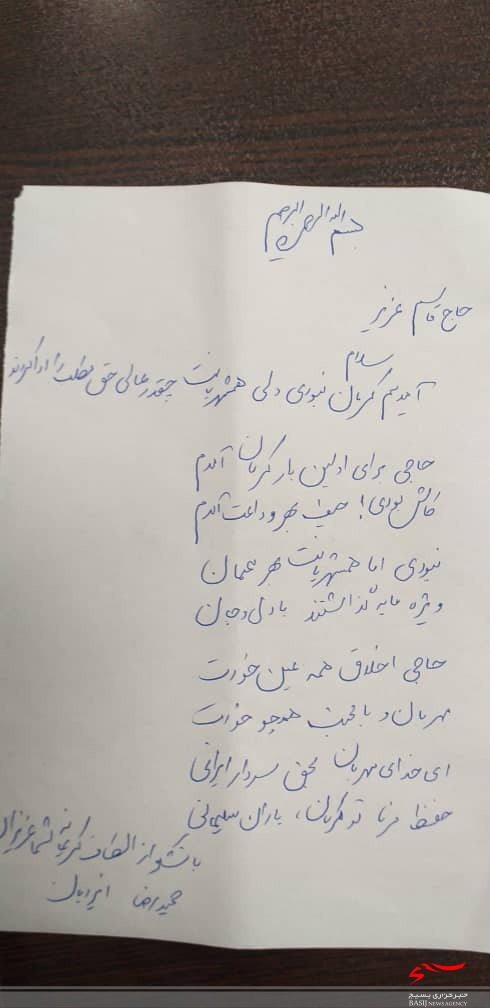 بسم الله الرحمن الرحیم
حاج قاسم عزیز
سلام
آمدیم کرمان نبودی ولی همشهریانت چقدر عالی حق مطلب را ادا کردند
حاجی برای اولین بار کرمان آمدم
کاش بودی! حیف بهر وداعت آمدم
نبودی اما همشهریانت هر مهمان
ویژه مایه گذاشتند با دل و جان
حاجی اخلاق همه عین خودت
مهربان و با محبت همچو خودت
ای خدای مهربان بحق سردار ایرانی
حفظ فرما تو کرمان، یاران سلیمانی
با تشکر از الطاف کریمانه شما عزیزان
حمیدرضا
خبرگزاری بسیج
BASIJ NEWS AGENCY